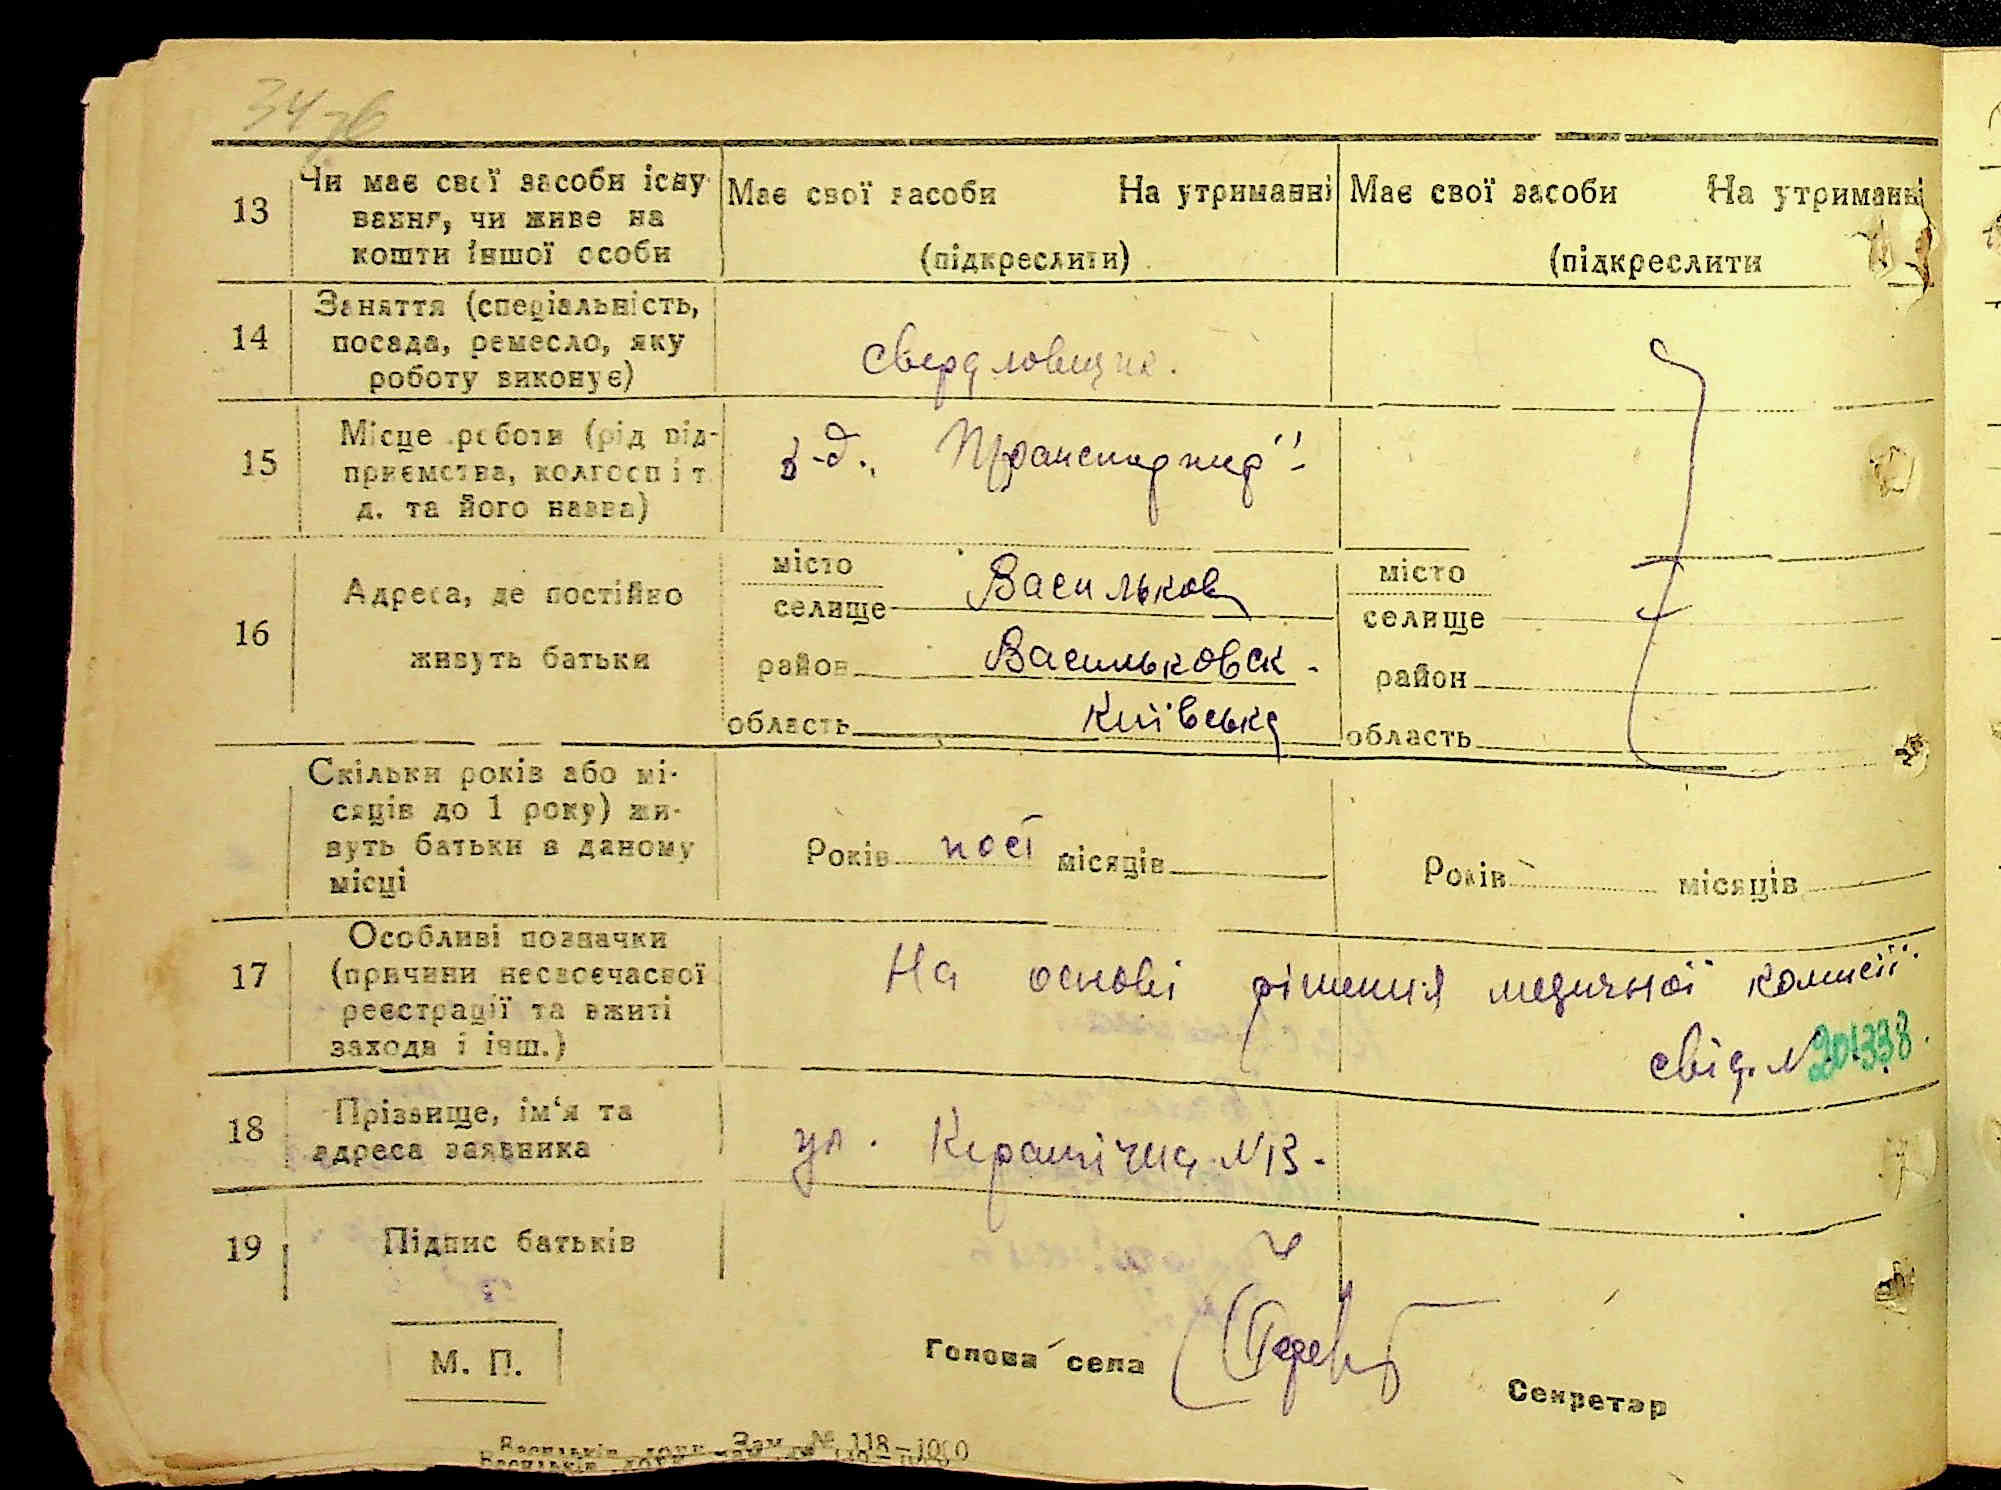 34 зв
13 Чи має свої засоби існу-
вання, чи живе на
кошти іншої особи
Має свої засоби На утриманні
(підкреслити)
Має свої засоби На утриманні
(підкреслити
14 Заняття (спеціальність,
посада, ремесло, яку
роботу виконує)
свердловщик.
15 Місце роботи (рід під-
приємства, колгосп і т.
д. та його назва)
з-д.
16 Адреса, де постійно
живуть батьки
місто
селище Васильков
район Васильковск-
область Київська
місто
селище
район
область
Скільки років або мі-
сяців до 1 року) жи-
вуть батьки в даному
місці
Років пост місяців
Років місяців
17 Особливі позначки
(причини несвоєчасної
реєстрації та вжиті
заходи і інш.)
На основі рішення медичної комисії.
свід. N 201338.
18 Прізвище, ім'я та
адреса заявника
ул. Керамічна N 13.
19 Підпис батьків
М. П.
Голова села
Секретар
Васильків Зам. № 118—1000